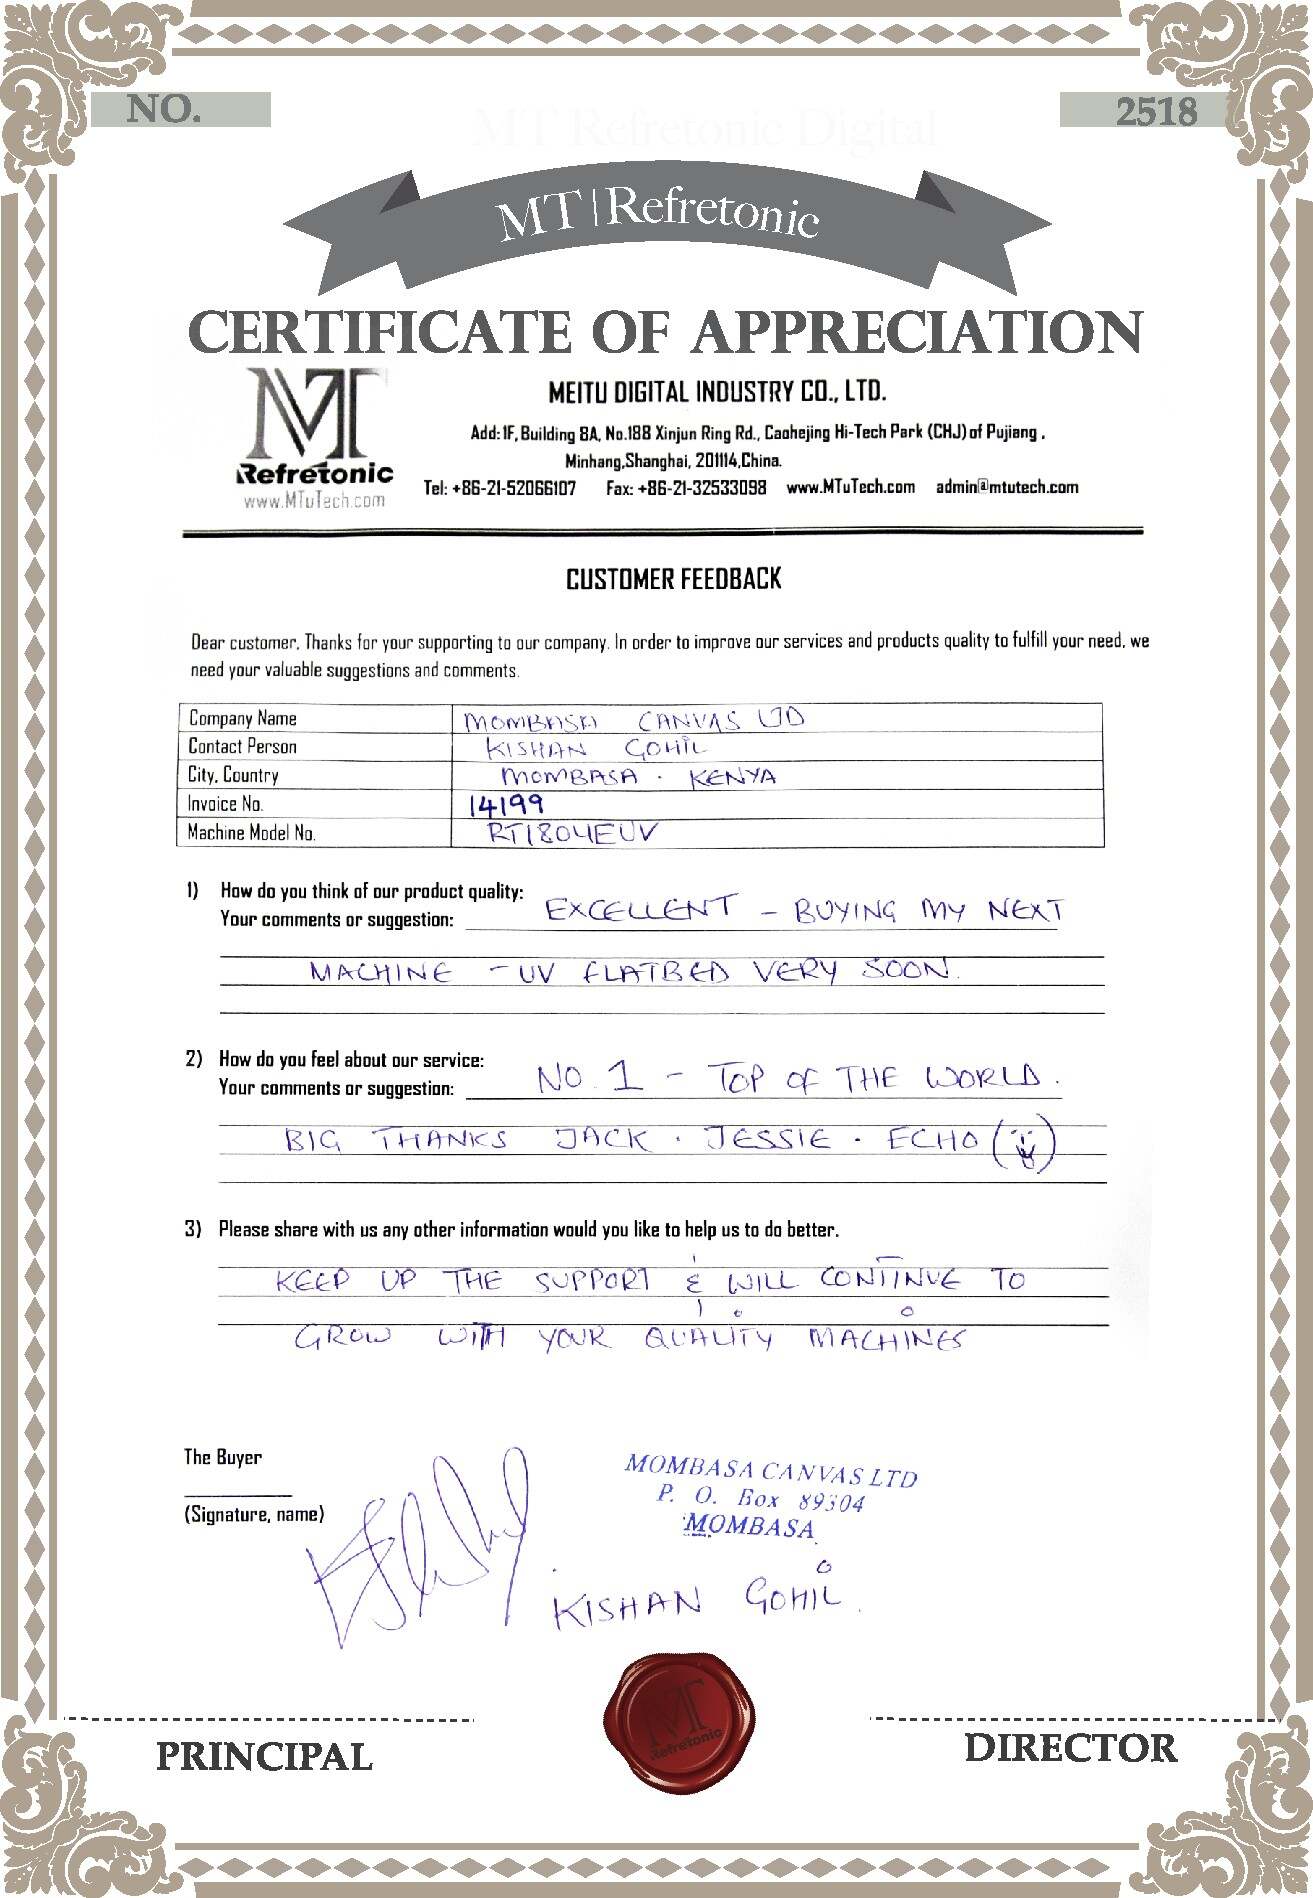 NO.
2518
MT Refretonic Digital
MT|Refretonic
CERTIFICATE OF APPRECIATION
MT
Refretonic
www.MTuTech.com
MEITU DIGITAL INDUSTRY CO., LTD.
Add: 1F, Building 8A, No.188 Xinjun Ring Rd., Caohejing Hi-Tech Park (CHJ) of Pujiang .
Minhang,Shanghai, 201114,China.
Tel: +86-21-52066107 Fax: +86-21-32533098 www.MTuTech.com admin@mtutech.com
CUSTOMER FEEDBACK
Dear customer, Thanks for your supporting to our company. In order to improve our services and products quality to fulfill your need, we
need your valuable suggestions and comments.
Company Name MOMBASA CANVAS LTD
Contact Person KISHAN GOHIL
City, Country MOMBASA . KENYA
Invoice No. 14199
Machine Model No. RT1804EUV
1) How do you think of our product quality:
Your comments or suggestion: EXCELLENT - BUYING MY NEXT
MACHINE - UV FLATBED VERY SOON.
2) How do you feel about our service:
Your comments or suggestion: NO. 1 - TOP OF THE WORLD.
BIG THANKS JACK . JESSIE . ECHO
3) Please share with us any other information would you like to help us to do better.
KEEP UP THE SUPPORT & WILL CONTINUE TO
GROW WITH YOUR QUALITY MACHINES
The Buyer
(Signature, name)
MOMBASA CANVAS LTD
P. O. Box 89304
MOMBASA
KISHAN GOHIL.
MT
Refretonic
PRINCIPAL
DIRECTOR